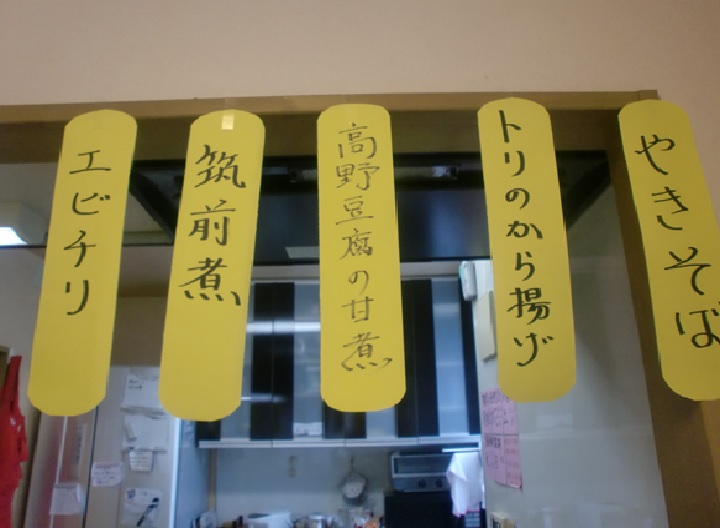 エビチリ
筑前煮
高野豆腐の甘煮
トリのから揚げ
やきそば